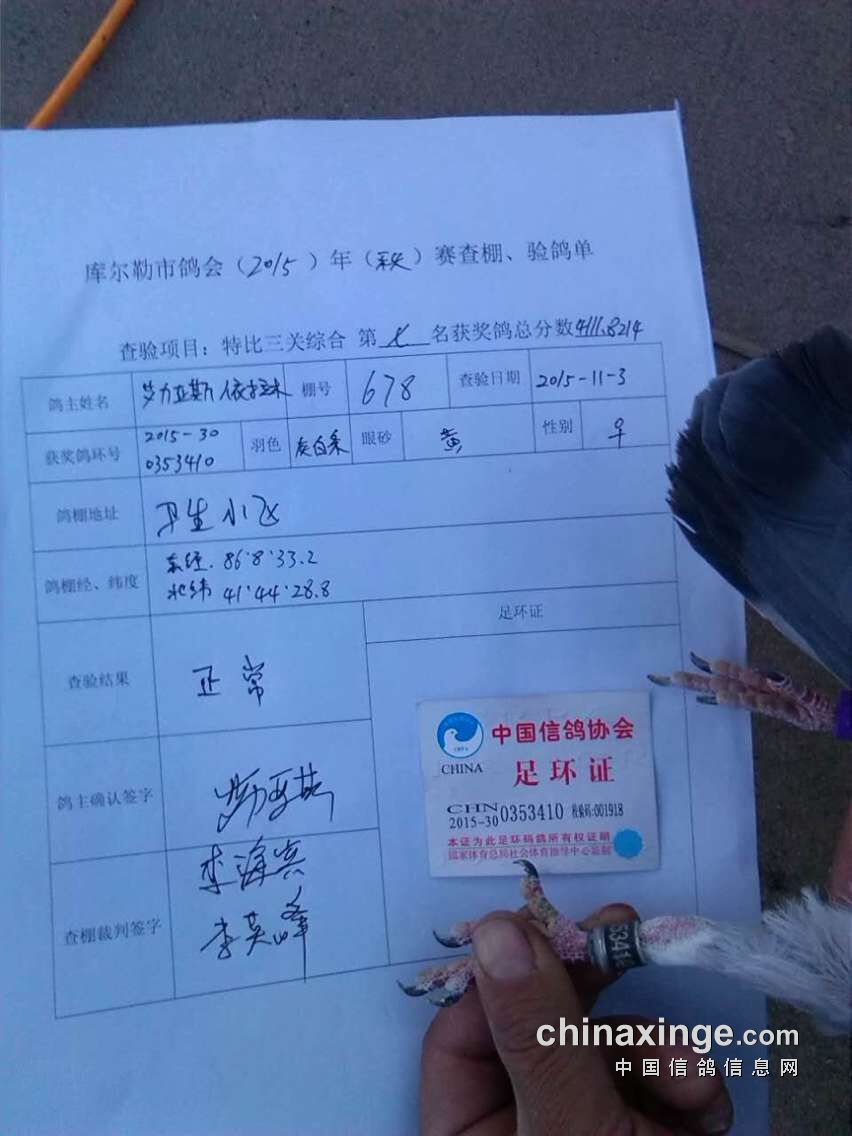 库尔勒市鸽会（2015）年（秋）赛查棚、验鸽单
查验项目：特比三关综合 第七名获奖鸽总分数4111.8214
鸽主姓名 亚斯 依 棚号 678 查验日期 2015-11-3
获奖鸽环号 2015-30 0353410 羽色 灰白条 眼砂 黄 性别 ♀
鸽棚地址 卫生小区
鸽棚经、纬度 东经. 86°8'33.2
北纬 41°44'28.8
足环证
查验结果 正常
鸽主确认签字
查棚裁判签字 李海宾
李英峰
中国信鸽协会
CHINA 足环证
CHN
2015-30 0353410 核验码:001918
本证为此足环码鸽所有权证明
国家体育总局社会体育指导中心监制
5341
chinaxinge.com
中国信鸽信息网